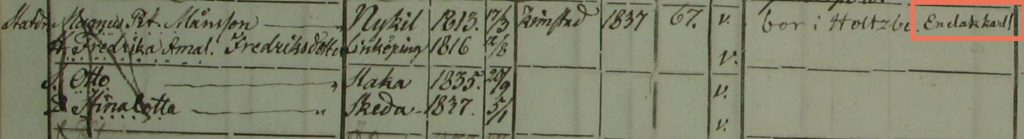 Statdr. Magnus Pet. Månsson Nykil 1813. 17/3 Kimstad 1837 67. v. bor i Holtzbe. Endakkadl
H. Fredrika Amal. Fredriksdotter Linköping 1816 12/8 v.
S. Otto " Slaka 1835. 20/9 v.
D Stina Lotta " Skeda 1837. 5/1 v.